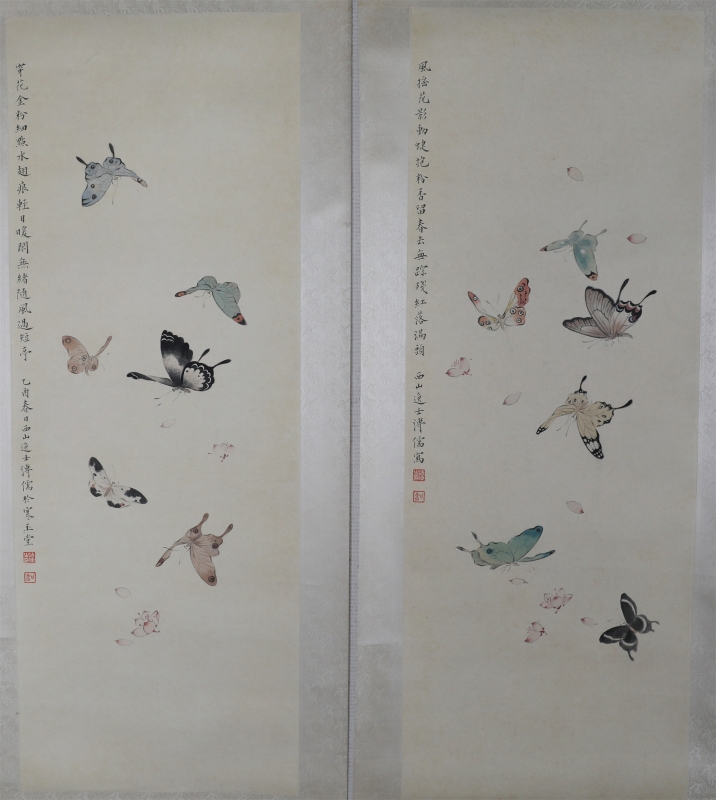 風搖花影動蜨抱粉香留春去無蹤殘紅落滿頭 西山逸士溥儒寫
芽花金粉細點水翅痕輕日暖閒無緒隨風過短亭 乙酉春日西山逸士溥儒於寒玉堂